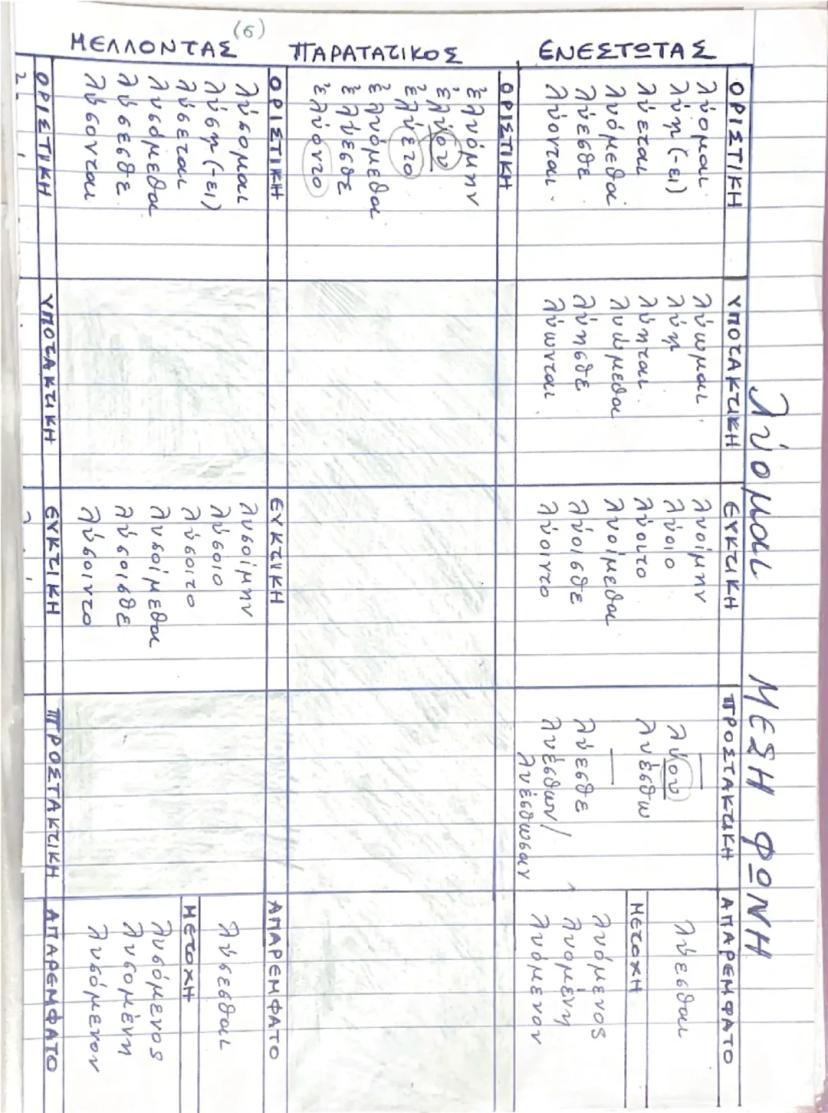 λύομαι ΜΕΣΗ ΦΩΝΗ
ΕΝΕΣΤΩΤΑΣ
ΟΡΙΣΤΙΚΗ ΥΠΟΤΑΚΤΙΚΗ ΕΥΚΤΙΚΗ ΠΡΟΣΤΑΚΤΙΚΗ ΑΠΑΡΕΜΦΑΤΟ
λύομαι λύωμαι λυοίμην —
λύῃ (-ει) λύῃ λύοιο λύου λύεσθαι
λύεται λύηται λύοιτο λυέσθω
ΜΕΤΟΧΗ
λυόμεθα λυώμεθα λυοίμεθα — λυόμενος
λύεσθε λύησθε λύοισθε λύεσθε λυομένη
λύονται λύωνται λύοιντο λυέσθων/ λυόμενον
λυέσθωσαν
ΠΑΡΑΤΑΤΙΚΟΣ
ΟΡΙΣΤΙΚΗ
ἐλυόμην
ἐλύου
ἐλύετο
ἐλυόμεθα
ἐλύεσθε
ἐλύοντο
ΜΕΛΛΟΝΤΑΣ (σ)
ΟΡΙΣΤΙΚΗ ΕΥΚΤΙΚΗ ΑΠΑΡΕΜΦΑΤΟ
λύσομαι λυσοίμην
λύσῃ (-ει) λύσοιο λύσεσθαι
λύσεται λύσοιτο ΜΕΤΟΧΗ
λυσόμεθα λυσοίμεθα λυσόμενος
λύσεσθε λύσοισθε λυσομένη
λύσονται λύσοιντο λυσόμενον
ΟΡΙΣΤΙΚΗ ΥΠΟΤΑΚΤΙΚΗ ΕΥΚΤΙΚΗ ΠΡΟΣΤΑΚΤΙΚΗ ΑΠΑΡΕΜΦΑΤΟ